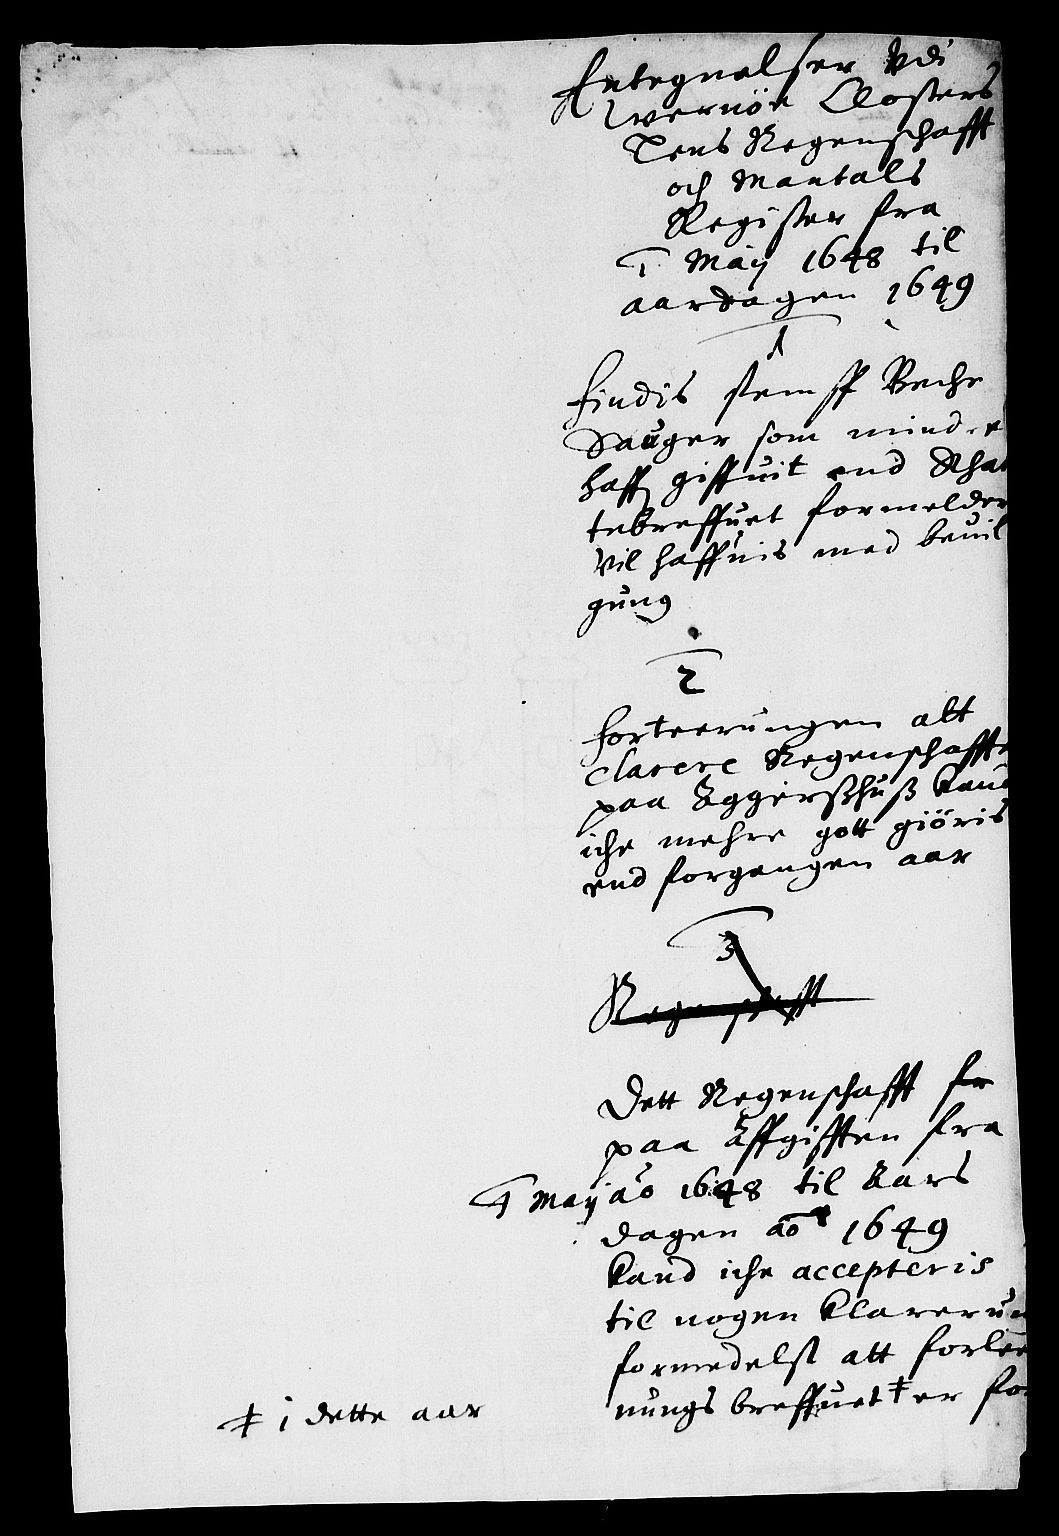 Antegnelser Udi
Uternöe Closters
Lens Regenschafft
och Mantals
Register fra
P May 1648 til
aarsdagen 1649
1
Findis Beche
Sauger som mindre
haff giffuit end Skat
tebreffuet formelder
vil haffuis med beuil
gung
2
Forteerungen att
clarere Regenschaffte
paa Aggerßhuß kand
iche mehre gott giöris
end forgangen aar
3
Regenschafft
Dett Regenschafft
paa Affgifften fra
P May ao 1648 til Aars
dagen ao 1649
kand iche accepteris
til nogen klarerun
formedelst att forlee
nungs breffuet ‡ er for
‡ i dette aar